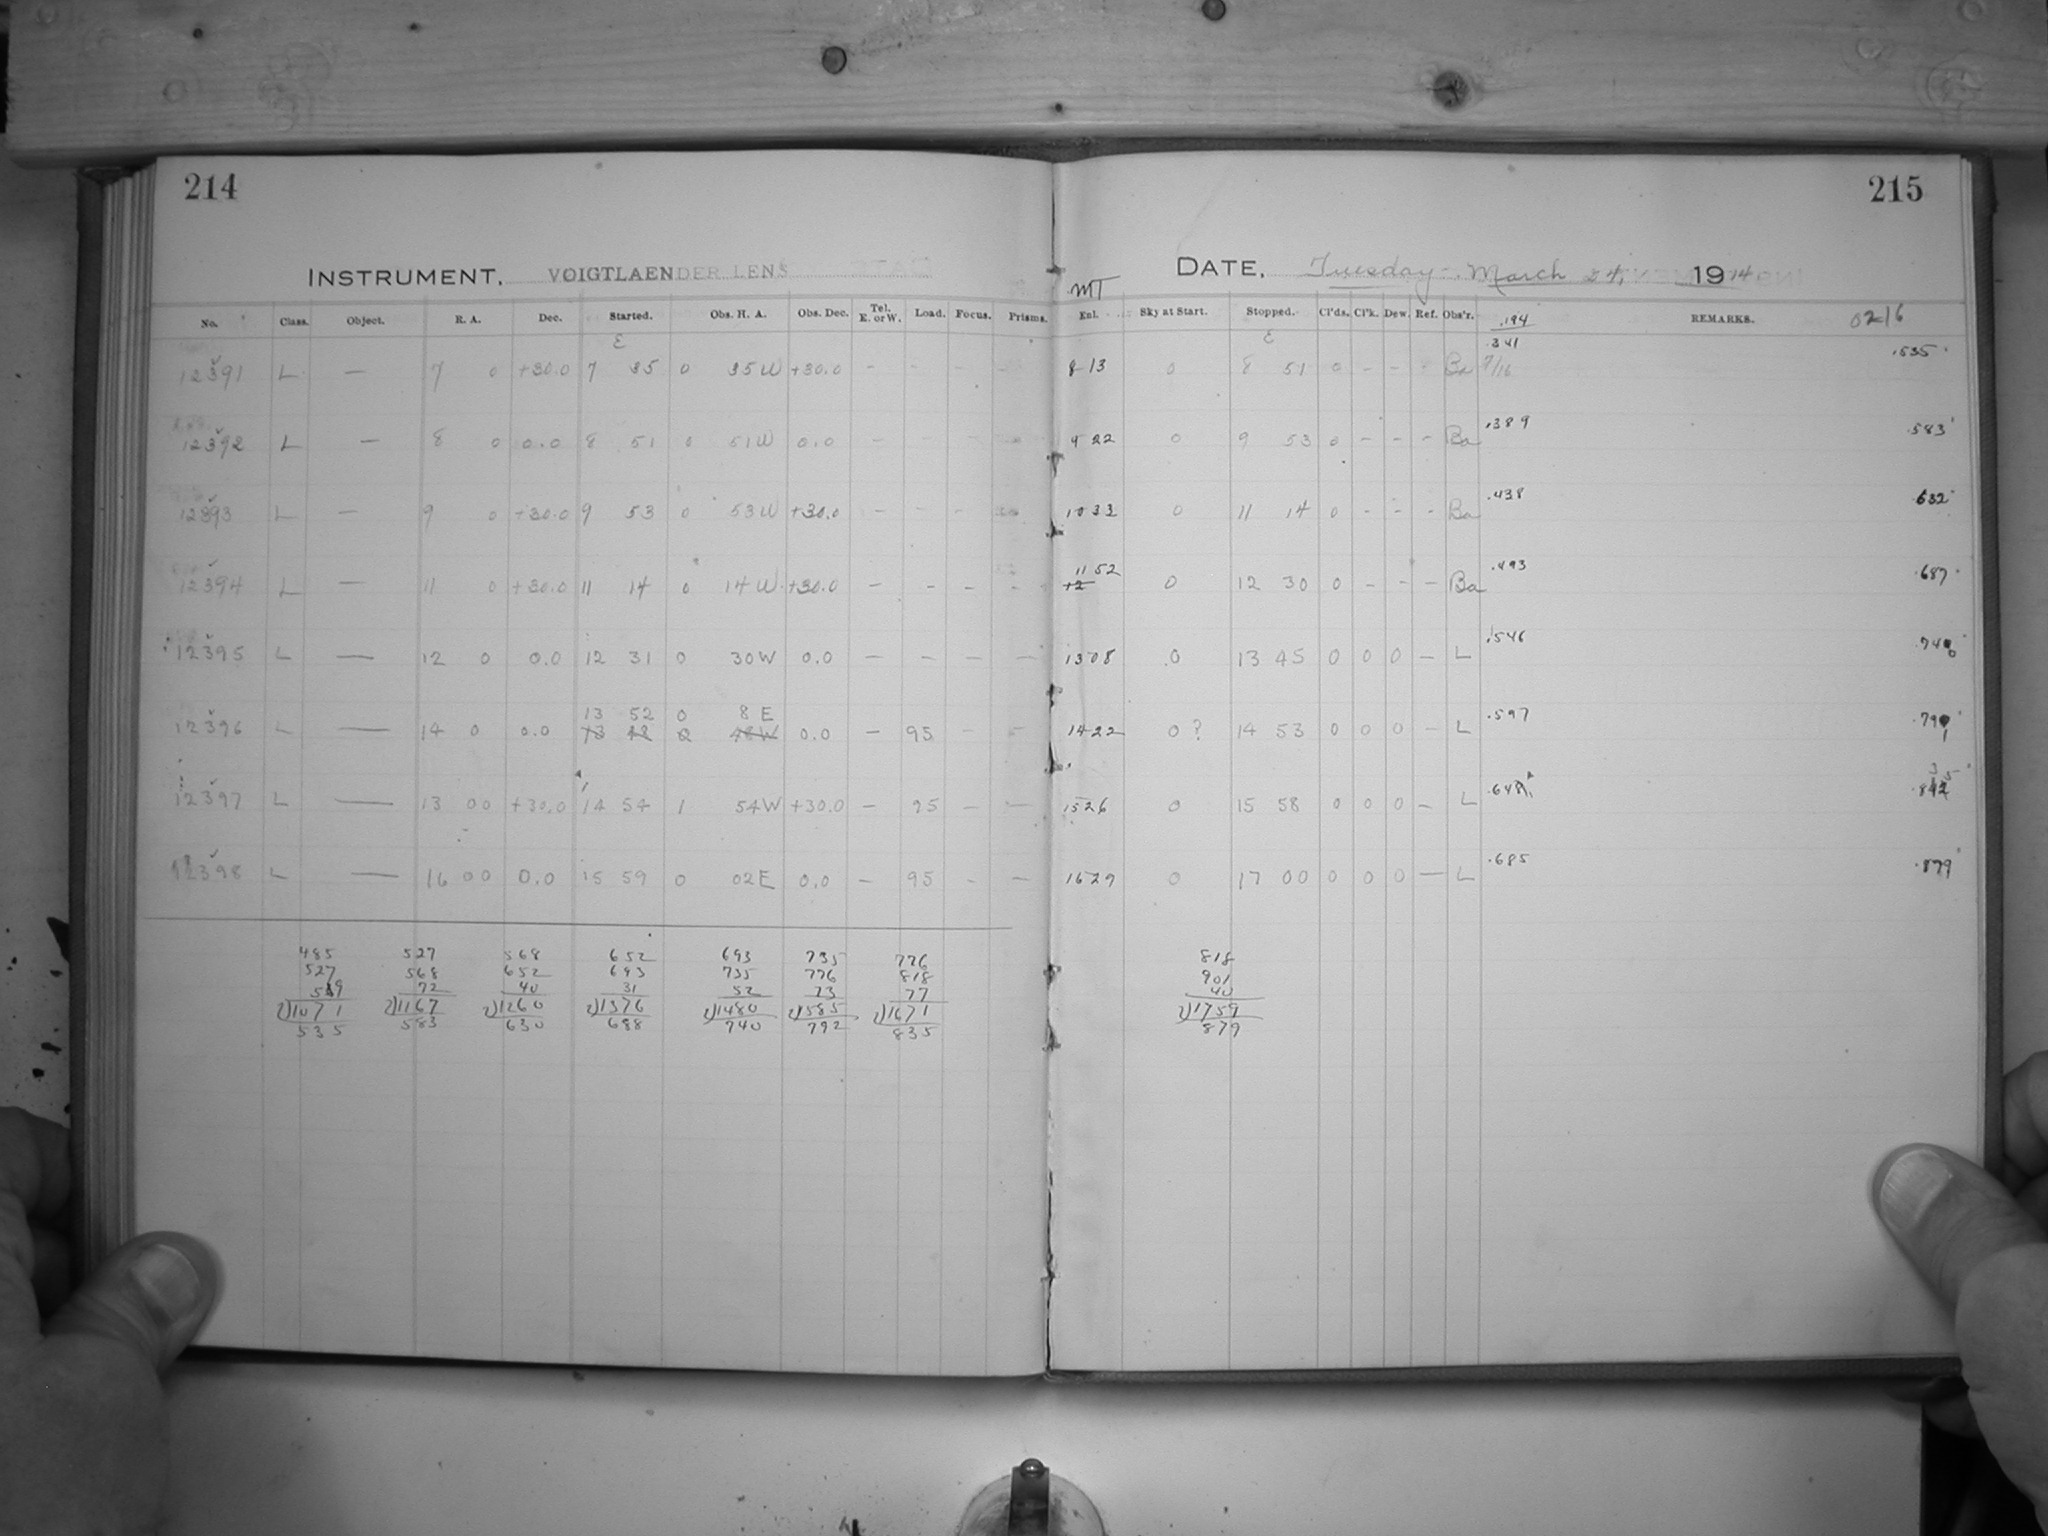 214
215
INSTRUMENT, VOIGTLAENDER LENS
DATE, Tuesday - March 24, 1914
MT
No. Class. Object. R. A. Dec. Started. Obs. H. A. Obs. Dec. Tel. E. or W. Load. Focus. Prisms. Enl. Sky at Start. Stopped. Cl'ds. Cl'k. Dew. Ref. Obs'r. .194 REMARKS. 0216
E E .341
12391 L — 7 0 +30.0 7 35 0 35W +30.0 - - - 8 13 0 8 51 0 - - - Ba 7/16 .535
12392 L — 8 0 0.0 8 51 0 51W 0.0 - - - 9 22 0 9 53 0 - - - Ba .389 .583
12393 L — 9 0 +30.0 9 53 0 53W +30.0 - - - 10 33 0 11 14 0 - - - Ba .438 .632
12394 L — 11 0 +30.0 11 14 0 14W +30.0 - - - - 11 52 0 12 30 0 - - - Ba .493 .687
12395 L — 12 0 0.0 12 31 0 30W 0.0 - - - - 13 08 0 13 45 0 0 0 - L .546 .740
13 52 0 8 E
12396 L — 14 0 0.0 13 48 0 48W 0.0 - 95 - - 14 22 0? 14 53 0 0 0 - L .597 .791
12397 L — 13 00 +30.0 14 54 1 54W +30.0 - 95 - - 15 26 0 15 58 0 0 0 - L
12398 L — 16 00 0.0 15 59 0 02E 0.0 - 95 - - 16 29 0 17 00 0 0 0 - L .685 .879
485 527 568 652 693 735 776 818
527 568 652 693 735 776 818 901
72 40 31 52 73 77 40
2)1071 2)1167 2)1260 2)1376 2)1480 2)1585 2)1671 2)1759
535 583 630 688 740 792 835 879